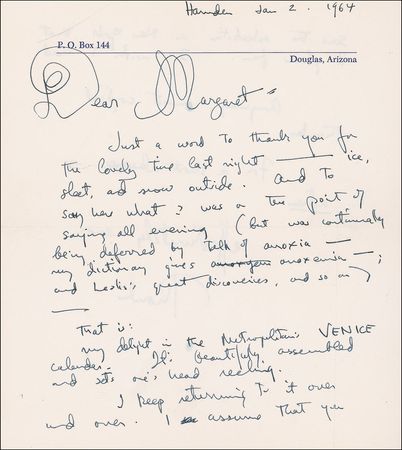 Hamden Jan 2. 1964
P. O. Box 144
Douglas, Arizona
Dear Margaret
Just a word to thank you for
the lovely time last night —— ice,
sleet, and snow outside. And to
say now what I was on the point of
saying all evening (but was continually
being deferred by talk of anoxia —
my dictionary gives anoxemia —;
and Leslie's great discoveries, and so on)
——
That is:
My delight in the Metropolitan's VENICE
calendar. It's beautifully assembled
and sets one's head reeling.
I keep returning to it over
and over. I assume that you